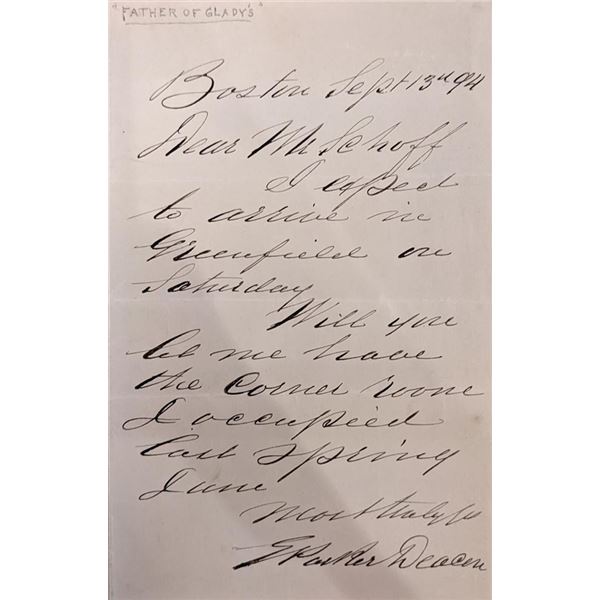 "FATHER OF GLADY'S"
Boston Sept 13th 94
Dear Mr Schoff
I expect
to arrive in
Greenfield on
Saturday
Will you
let me have
the corner room
I occupied
last spring
June
Most truly yrs
E Parker Deacon